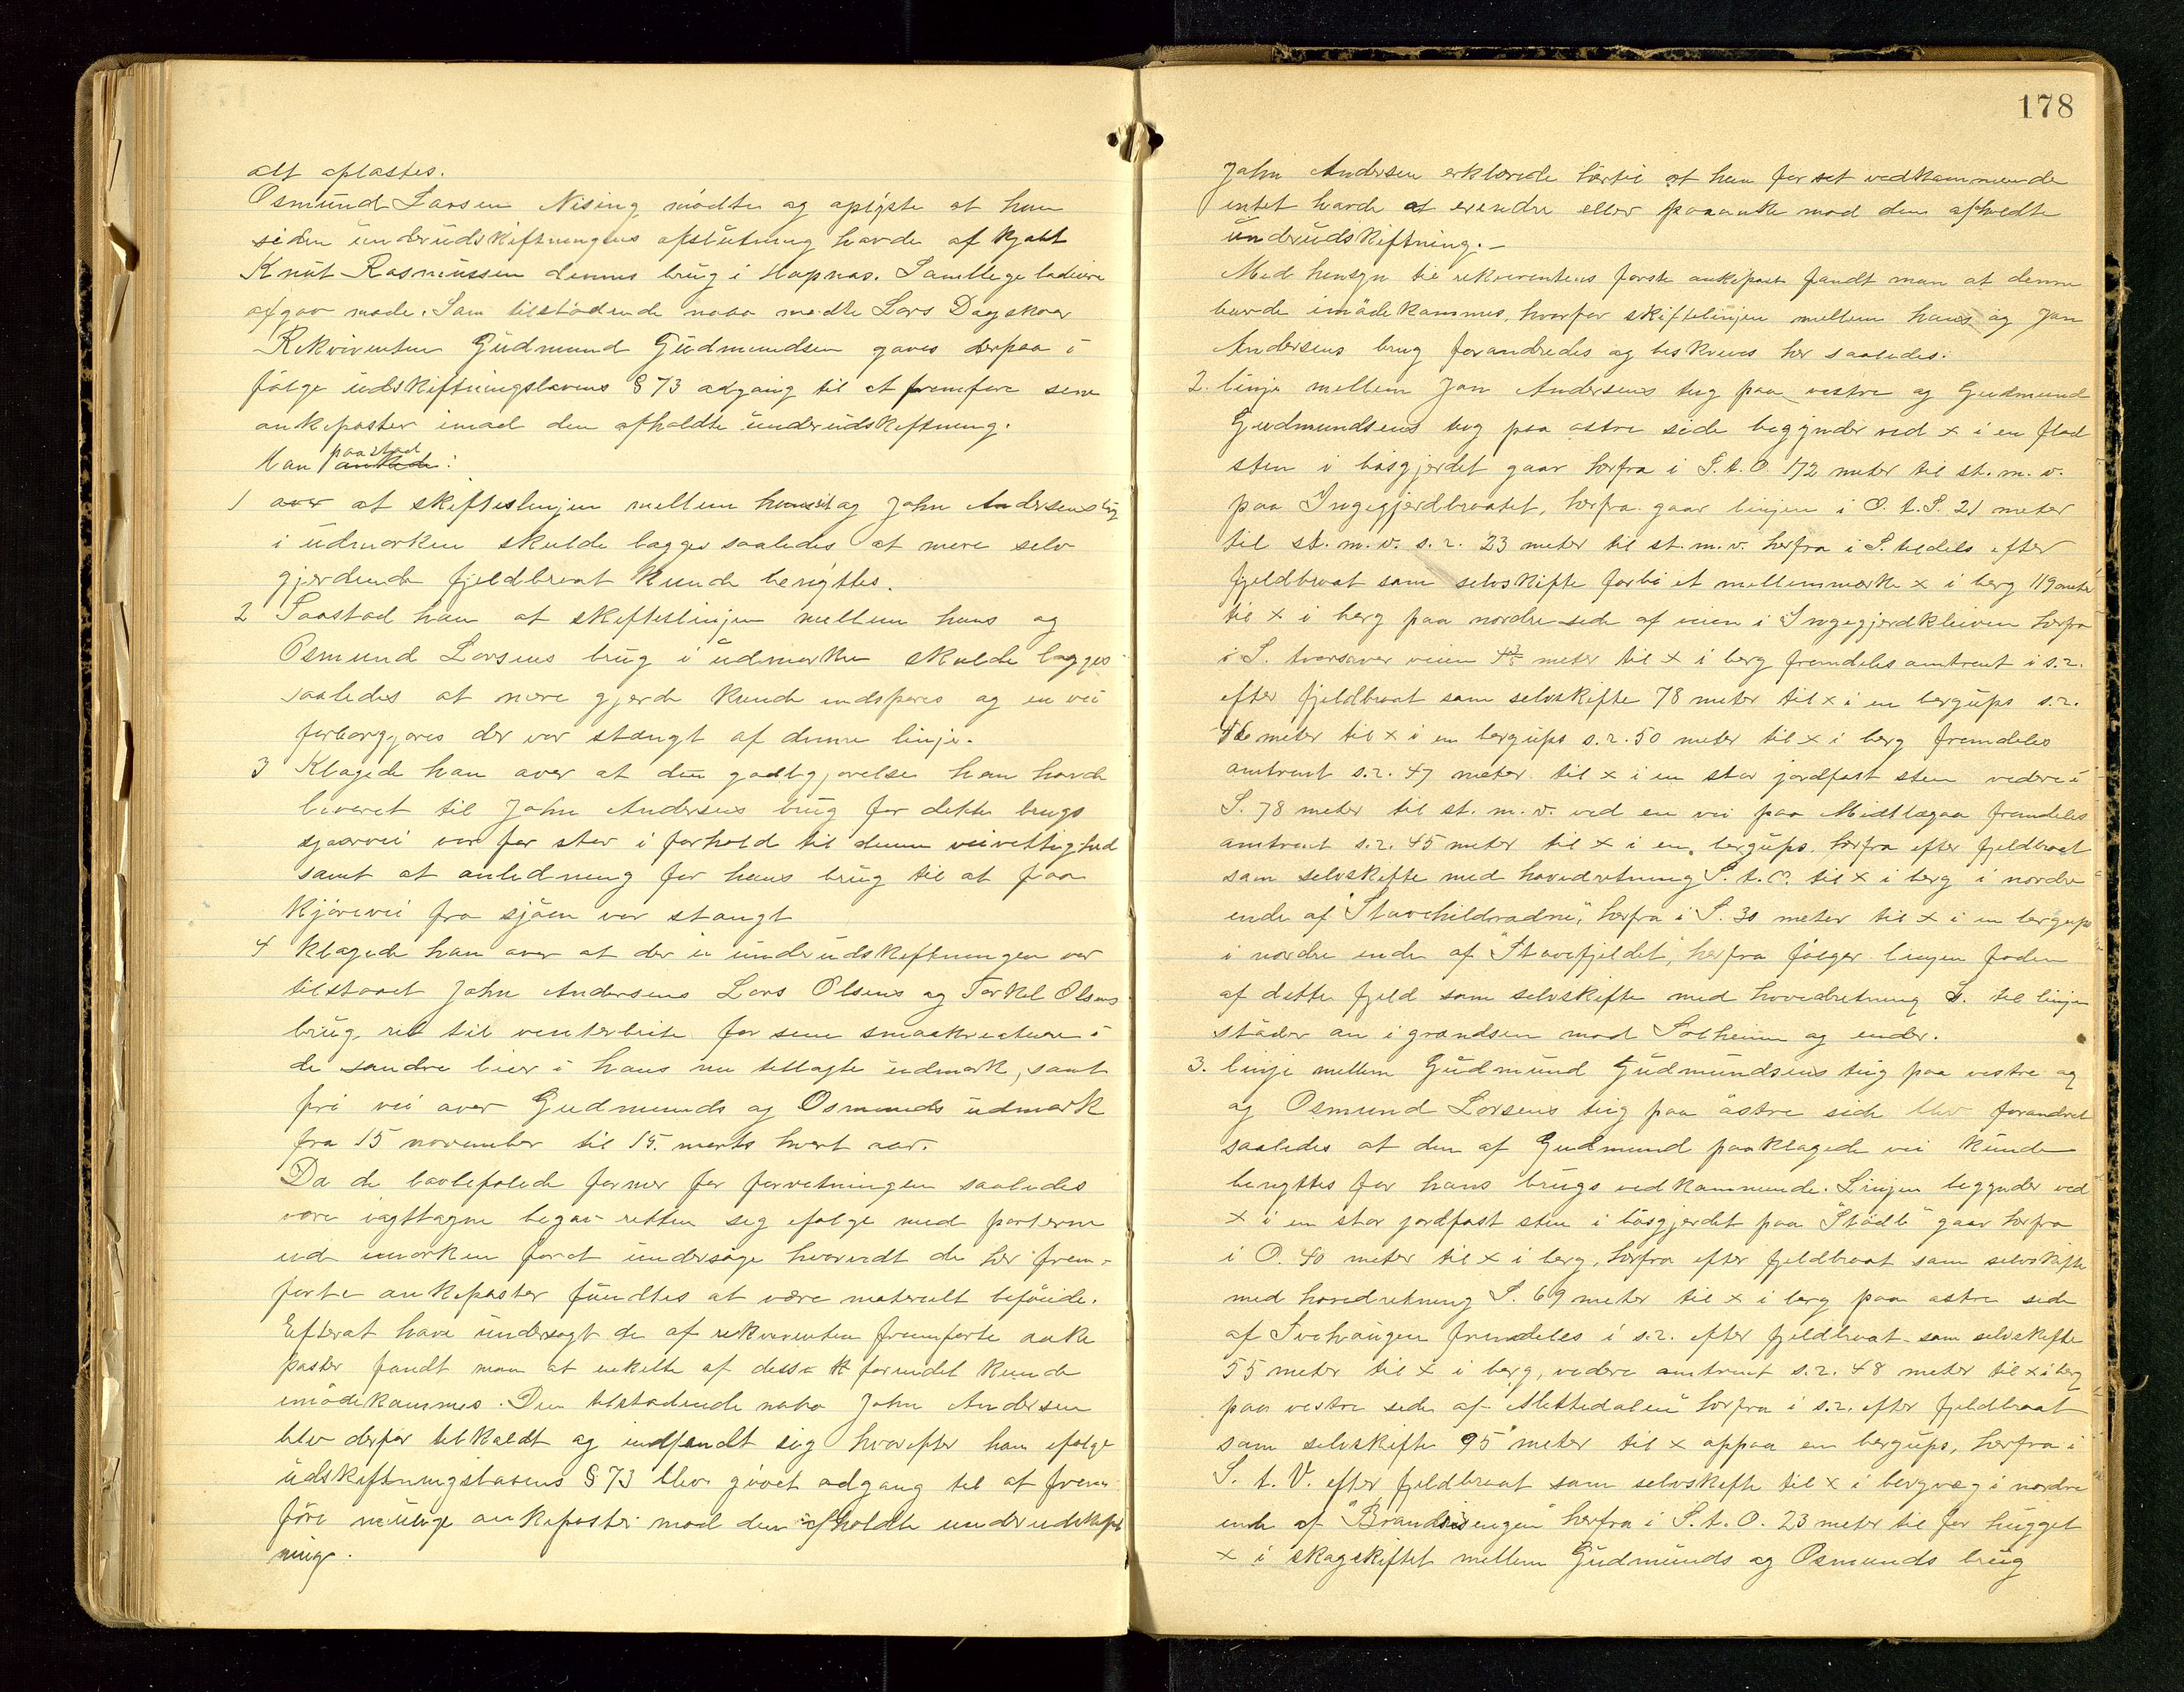 alt oplæstes.
Osmund Larsen Nising mödte og oplyste at han
siden underudskiftningens afslutning havde af kjøbt
Knut Rasmussen dennes brug i Hapnes. Samtlige lodeiere
afgav møde. Som tilstödende nabo mødte Lars Dagskar
Rekvirenten Gudmund Gudmundsen gaves derpaa i
fölge udskiftningslovens § 73 adgang til at fremføre sine
ankeposter imod den afholdte underudskiftning.
Han paastod ankede:
1 over at skifteslinjen mellem hans og John Andersens brug
i udmarken skulde lægges saaledes at mere selv
gjerdende fjeldbrat kunde benyttes.
2 Paastod han at skifteslinjen mellem hans og
Osmund Larsens brug i udmarken skulde lægges
saaledes at mere gjerde kunde indspares og en vei
farbargjøres der var stængt af denne linje.
3 Klagede han over at den godtgjørelse han havde
leveret til John Andersens brug for dette brugs
sjøvei var for stor i forhold til denne veirettighed
samt at anledning for hans brug til at faa
kjørevei fra sjöen var stængt
4 Klagede han over at der i underudskiftningen var
tilstaaet John Andersens Lars Olsens og Torkel Olsens
brug ret til venterbeite for sine smaakreature i
de söndre lier i hans nu tillagte udmark, samt
fri vei over Gudmunds og Osmunds udmark
fra 15 november til 15. marts hvert aar.
Da de lovbefalede former for forretningen saaledes
vare iagttagne begav retten sig ifølge med parterne
ud imarken forat undersöge hvorvidt de her frem-
førte ankeposter fandtes at være materielt beföiede.
Efterat have undersögt de af rekvirenten fremførte anke
poster fandt man at enkelte af disse forendel kunde
imödekommes. Den tilstødende nabo John Andersen
blev derfor tilkaldt og indfandt sig hvorefter han ifølge
udskiftningslovens § 73 blev givet adgang til at frem
före mulige ankeposter mod den afholdte underudskift
ning.
178
John Andersen erklærede hertil at han for sit vedkommende
intet havde at erindre eller paaanke mod den afholdte
underudskiftning.-
Med hensyn til rekvirentens første ankepost fandt man at denne
burde imödekommes, hvorfor skiftelinjen mellem hans og Jon
Andersens brug forandredes og beskrives her saaledes:
2. linje mellem Jon Andersens teig paa vestre og Gudmund
Gudmundsens teig paa østre side begynder ved x i en flad
sten i bösgjerdet gaar herfra i S. t. O. 172 meter til st. m. v.
paa Ingegjerdbraatet, herfra gaar linjen i O. t. S. 21 meter
til st. m. v. s. r. 23 meter til st. m. v. herfra i S. tildels efter
fjeldbrat som selvskifte forbi et mellemmærke x i berg 119 meter
til x i berg paa nordre side af veien i Ingegjerdkleiven herfra
i S. tvorsover veien meter til x i berg fremdeles omtrent i s. r.
efter fjeldbrat som selvskifte 78 meter til x i en bergups s. r.
46 meter til x i en bergups s. r. 50 meter til x i berg fremdeles
omtrent s. r. 47 meter til x i en stor jordfast sten videre i
S. 78 meter til st. m. v. ved en vei paa Midtlægaa fremdeles
omtrent s. r. 45 meter til x i en bergups herfra efter fjeldbrat
som selvskifte med hovedretning S. t. O. til x i berg i nordre
ende af "Stavehildradne", herfra i S. 30 meter til x i en bergups
i nordre ende af "Stavefjeldet", herfra fölger linjen foden
af dette fjeld som selvskifte med hovedretning S. til linjen
stöder an i grændsen mod Solheim og ender.
3. linje mellem Gudmund Gudmundsens teig paa vestre og
og Osmund Larsens teig paa östre side blev forandret
saaledes at den af Gudmund paaklagede vei kunde
benyttes for hans brugs vedkommende. Linjen begynder ved
x i en stor jordfast sten i bösgjerdet paa "Stödle" gaar herfra
i O. 40 meter til x i berg, herfra efter fjeldbrat som selvskifte
med hovedretning S. 69 meter til x i berg paa østre side
af Svehaugen fremdeles i s. r. efter fjeldbrat som selvskifte
55 meter til x i berg, videre omtrent s. r. 48 meter til x i berg
paa vestre side af "Mettedalen" herfra i s. r. efter fjeldbrat
som selvskifte 95 meter til x oppaa en bergups, herfra i
S. t. V. efter fjeldbrat som selvskifte til x i bergvæg i nordre
ende af "Brandsisengen" herfra i S. t. O. 23 meter til før hugget
x i skogskiftet mellem Gudmunds og Osmunds brug